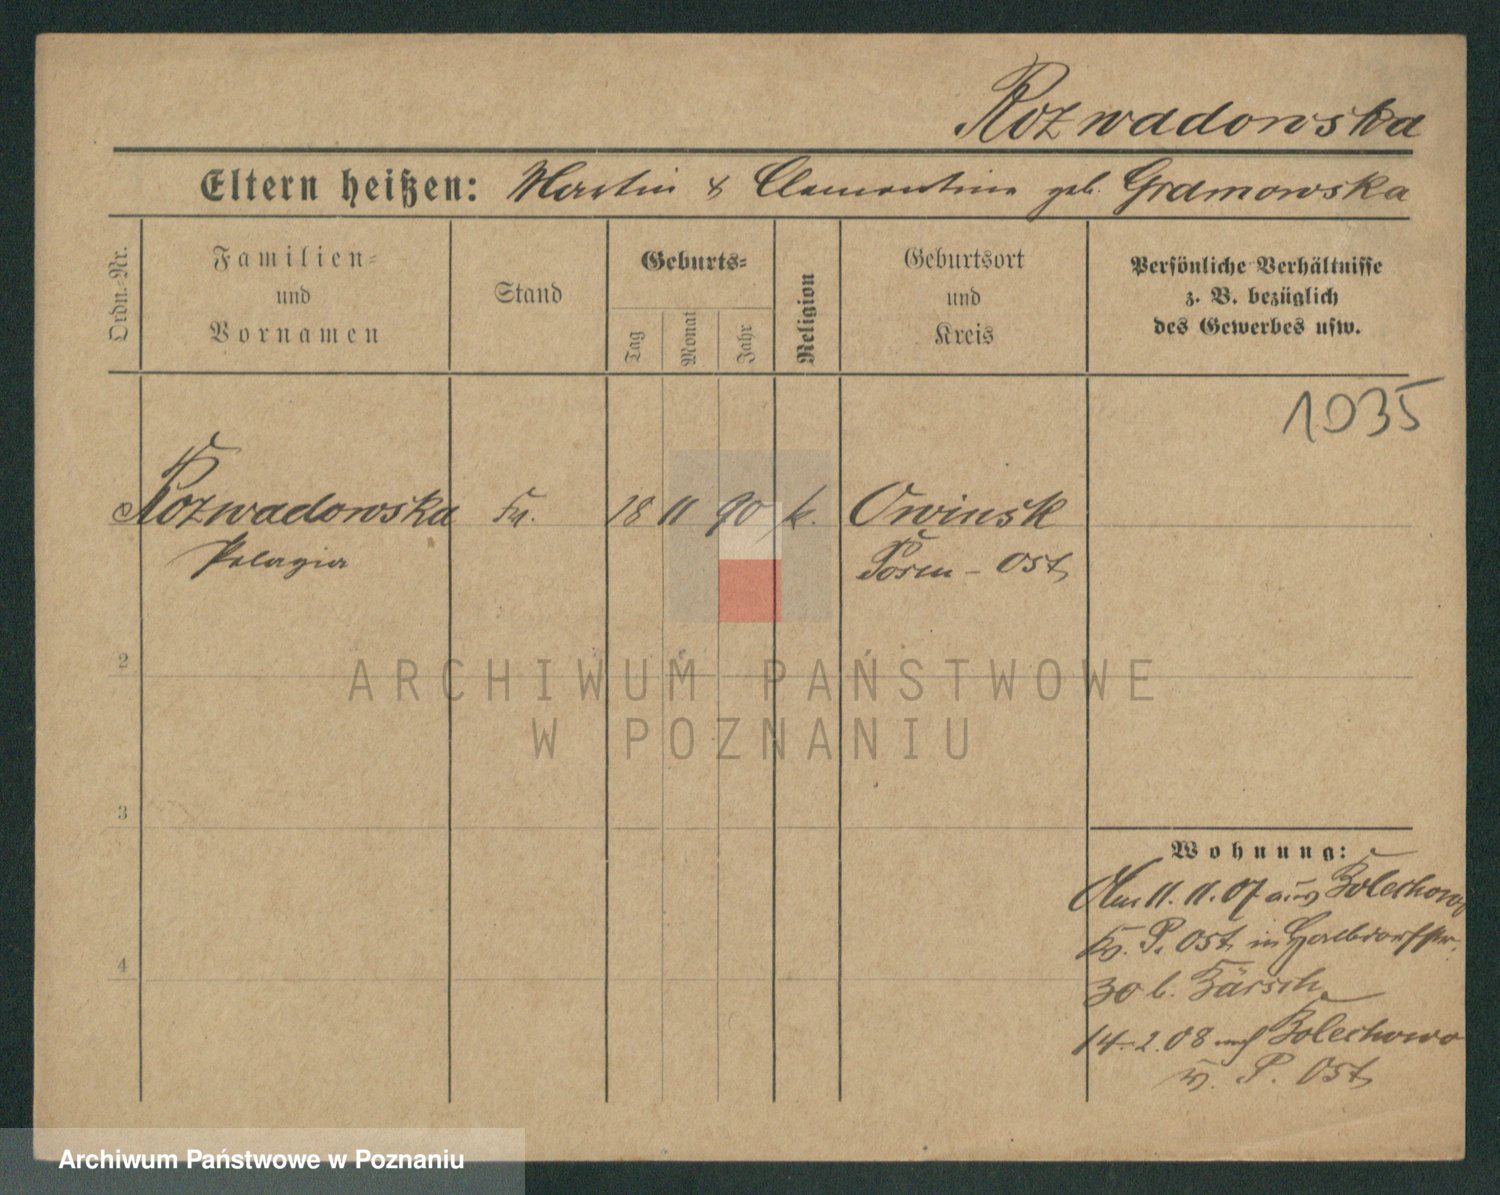 Rozwadowska
Eltern heißen: Martin & Clementine geb. Gramowska
Ordn.-Nr.
Familien- und Vornamen
Stand
Geburts-
Tag
Monat
Jahr
Religion
Geburtsort und Kreis
Persönliche Verhältnisse
z. B. bezüglich
des Gewerbes usw.
1035
Rozwadowska 18 11 90 k. Owinsk
Pelagia Posen - Ost
2
ARCHIWUM PAŃSTWOWE
W POZNANIU
3
Wohnung:
Am 11. 11. 07 aus Bolechowo
Kr. P. Ost in Halbdorfstr.
30 b. Bärsch
4
14. 2. 08 nach Bolechowo
Kr. P. Ost
Archiwum Państwowe w Poznaniu